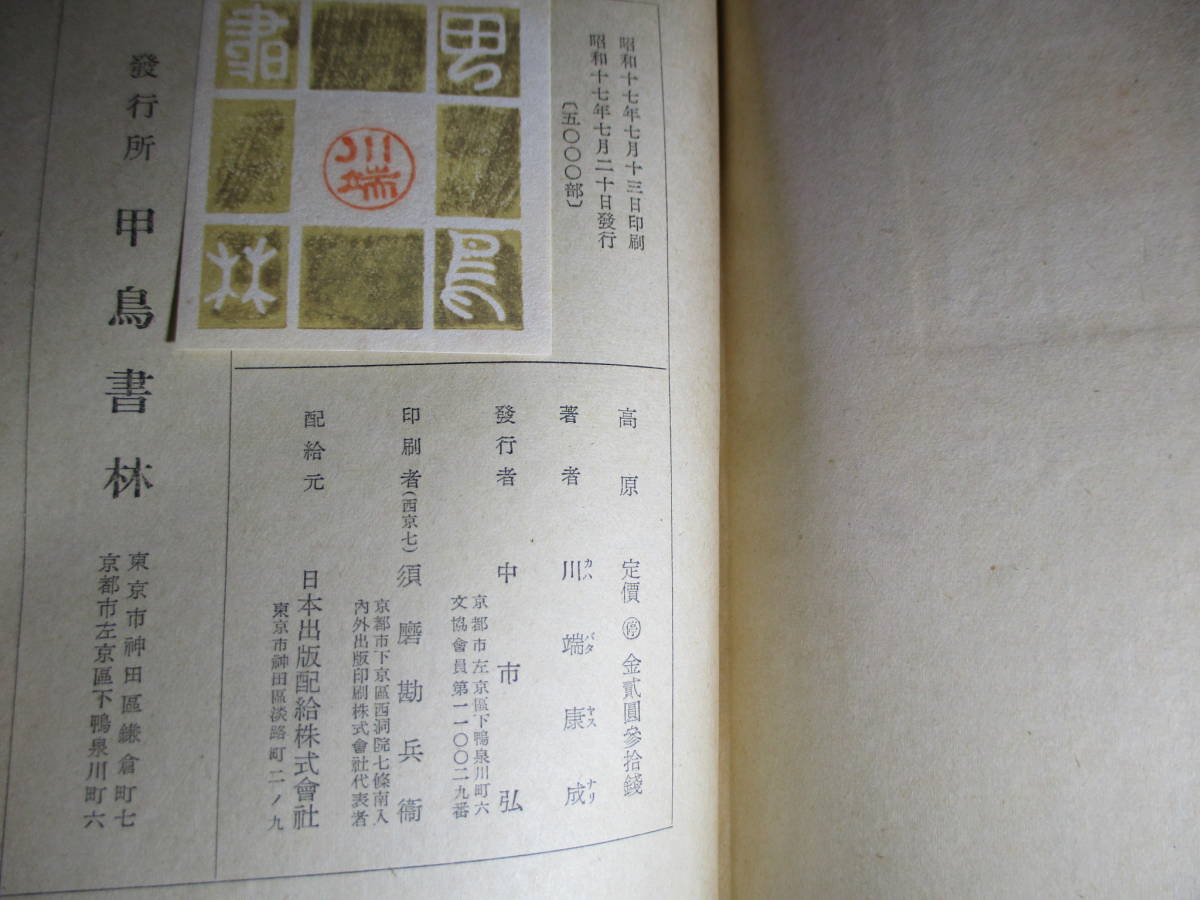 昭和十七年七月十三日印刷
昭和十七年七月二十日發行
〔五〇〇〇部〕
甲鳥
書林
川端
高原 定價 ㊡ 金貳圓參拾錢
著者 川端康成
カハ バタ ヤス ナリ
發行者 中市弘
京都市左京區下鴨泉川町六
文協會員第一一〇〇二九番
印刷者(西京七) 須磨勘兵衞
京都市下京區西洞院七條南入
內外出版印刷株式會社代表者
配給元 日本出版配給株式會社
東京市神田區淡路町二ノ九
發行所 甲鳥書林
東京市神田區鎌倉町七
京都市左京區下鴨泉川町六